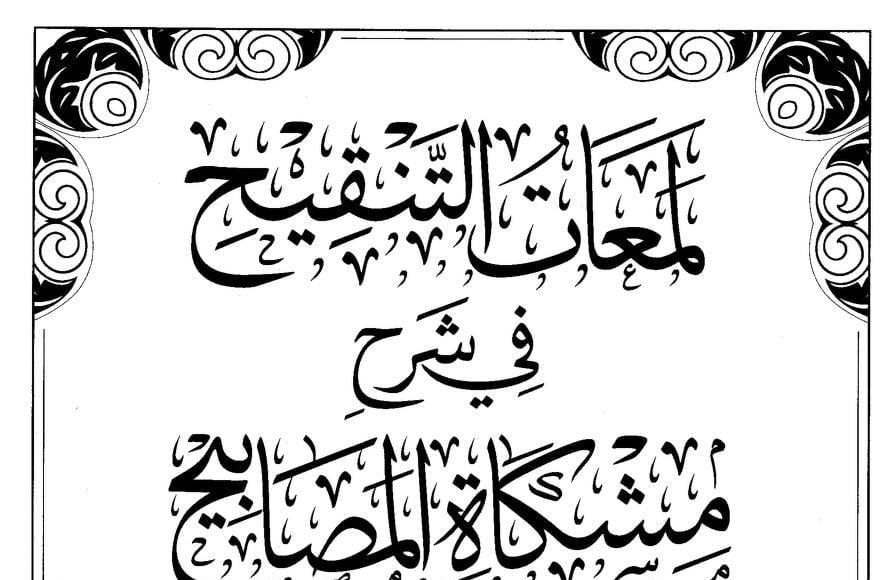 لَمَعَاتُ التَّنقِيحِ
فِي شَرحِ
مِشكَاةِ المَصَابِيحِ